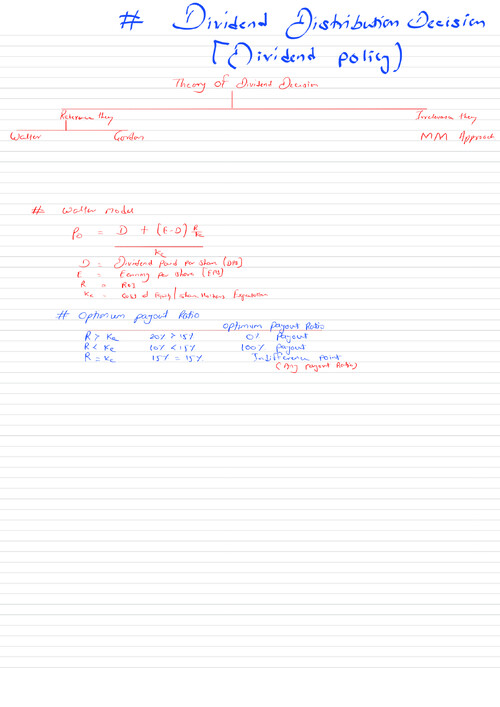 # Dividend Distribution Decision
[Dividend policy)
Theory of Dividend Decision
Relevance they Irrelevance they
Walter Gordon MM Approach
# Walter model
P0 = D + (E-D) R/Ke
Ke
D = Dividend Paid Per share (DPS)
E = Earning per share (EPS)
R = ROI
Ke = Cost of Equity / Share Holders Expectation
# Optimum payout Ratio
Optimum payout Ratio
R > Ke 20% > 15% 0% payout
R < Ke 10% < 15% 100% payout
R = Ke 15% = 15% Indifference point
(Any payout Ratio)